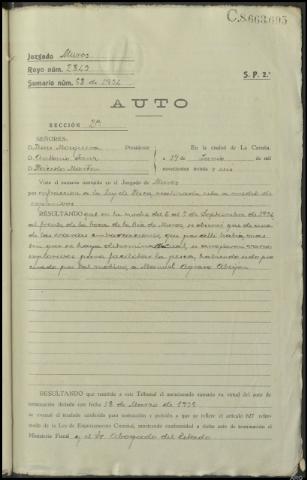 C.8.663.695
Juzgado Muros
Rayo núm. 2843
Sumario núm. 58 de 1934
S. P. 2.ª
AUTO
SECCIÓN 2ª
SEÑORES:
D. Presidente En la ciudad de La Coruña
D. Antonio a 19 de Junio de mil
D. Ricardo novecientos treinta y seis
Visto el sumario instruido en el Juzgado de Muros
por infracción a la Ley de Pesca realizada esta a medio de
explosivos
RESULTANDO que en la noche del 6 al 7 de Septiembre de 1934
al frente de la boca de la Ría de Muros, se observó que de una
de las varias embarcaciones que por allí había, mas
sin que se haya determinado cual, se arrojaron varios
explosivos para facilitar la pesca, habiendo sido pro
cesado por tal motivo a Manuel Agraso
RESULTANDO que remitido a este Tribunal el mencionado sumario en virtud del auto de
terminación dictado con fecha 28 de Marzo de 1935
se evacuó el traslado establecido para instrucción y petición a que se refiere el artículo 627 refor-
mado de la Ley de Enjuiciamiento Criminal, mostrando conformidad a dicho auto de terminación el
Ministerio Fiscal y el Sr Abogado del Estado